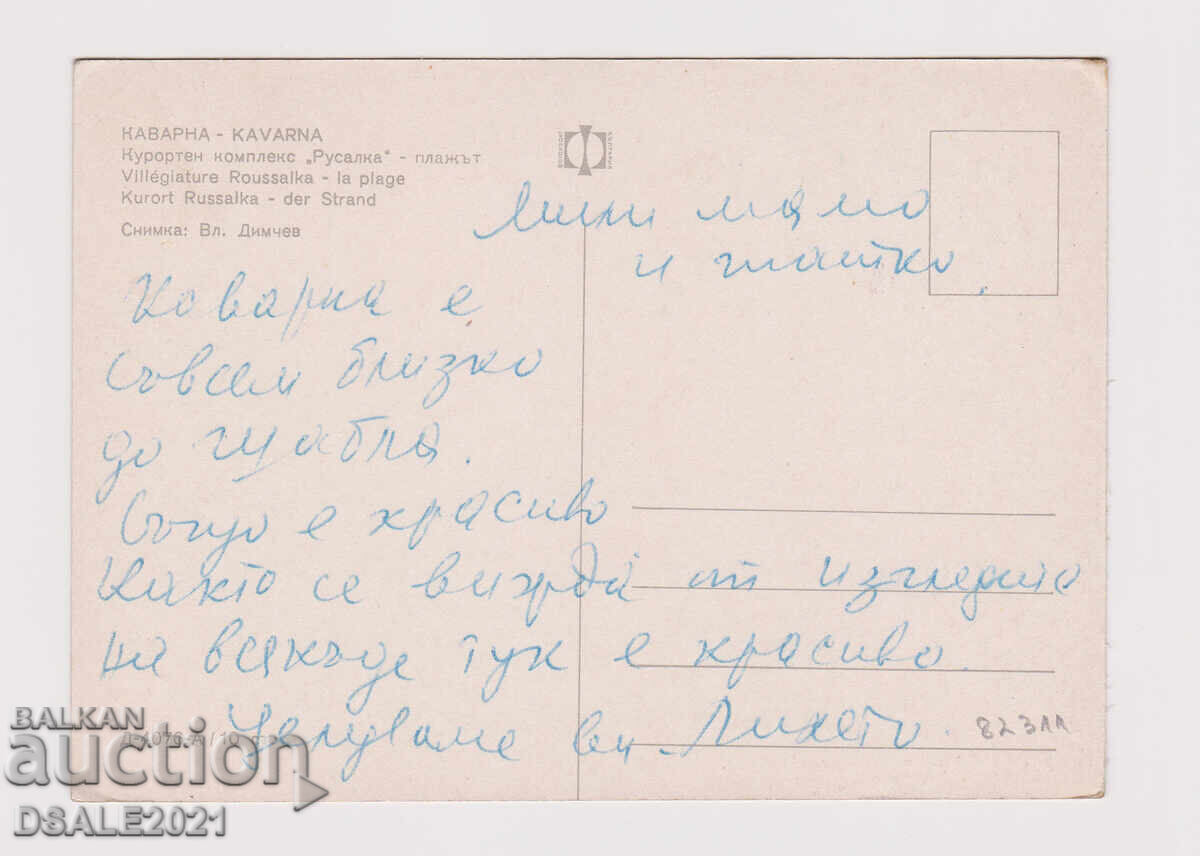 КАВАРНА - KAVARNA
Курортен комплекс „Русалка“ - плажът
Villégiature Roussalka - la plage
Kurort Russalka - der Strand
Снимка: Вл. Димчев
Мили мамо
и татко,
Каварна е
съвсем близко
до Шабла.
Също е красиво
Както се вижда от изгледите
на всякъде тук е красиво.
Целуваме ви
Д-4076-А/10
82311
BALKAN
auction
DSALE2021